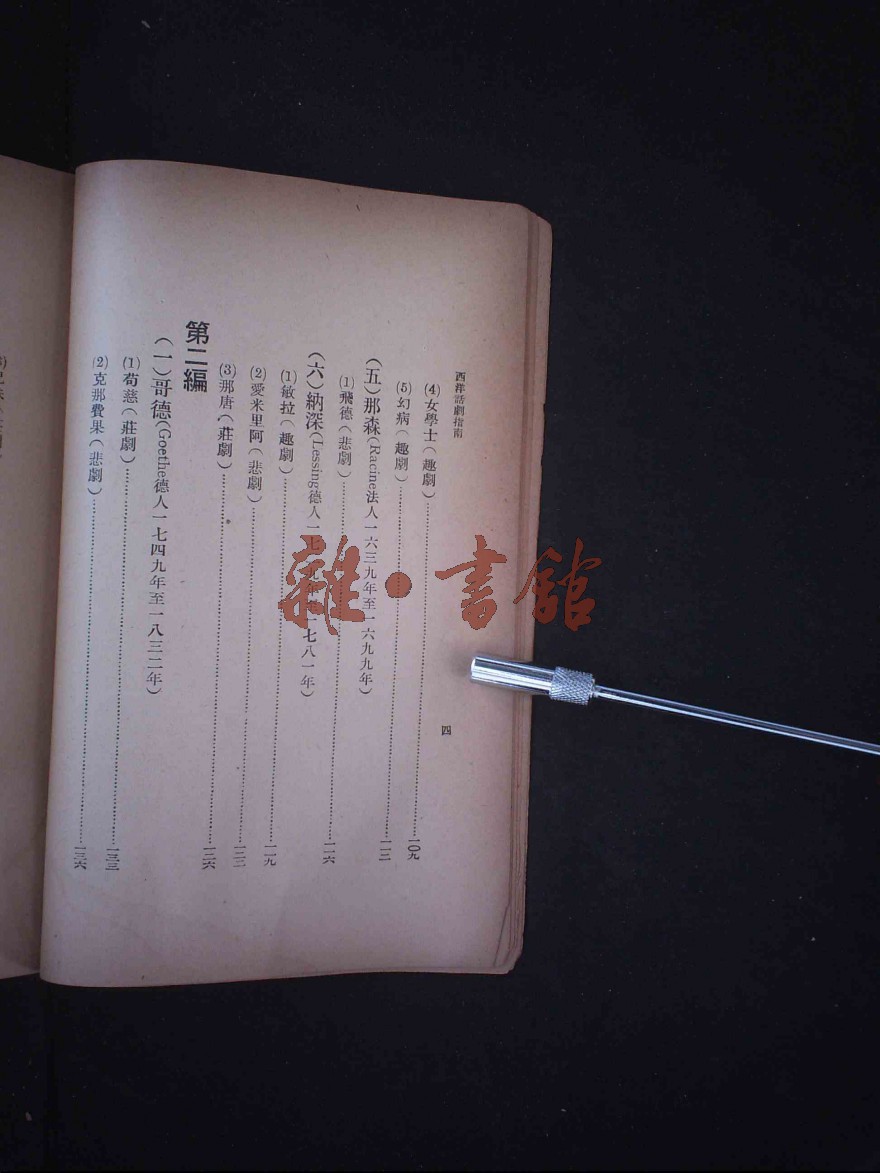 西洋話劇指南
四
(4)女學士(趣劇)……一〇九
(5)幻病(趣劇)……一一二
(五)那森(Racine法人一六三九年至一六九九年)
(1)飛德(悲劇)……一一六
(六)納深(Lessing德人一七 九年 一七八一年)
(1)敏拉(趣劇)……一一九
(2)愛米里阿(悲劇)……一二二
(3)那唐(莊劇)……一二六
第二編
(一)哥德(Goethe德人一七四九年至一八三二年)
(1)荀慈(莊劇)……一三三
(2)克那費果(悲劇)……一三六
雜·書館